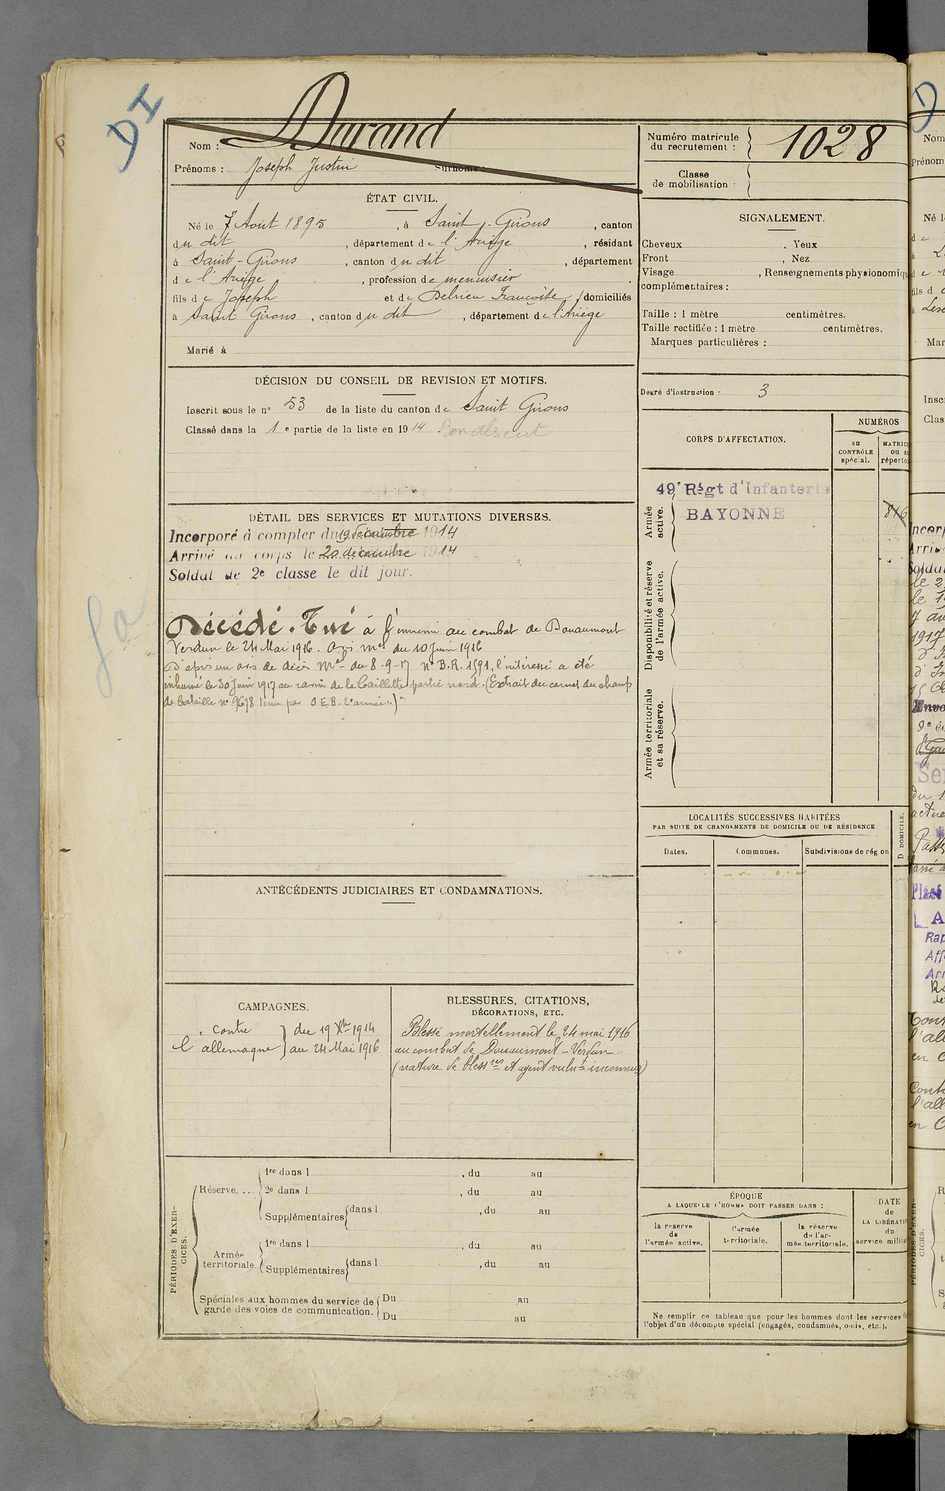 DI
Nom : Durand
Prénoms : Joseph Justin Surnoms :
Numéro matricule du recrutement : 1028
Classe de mobilisation :
ÉTAT CIVIL.
Né le 7 Août 1895, à Saint-Girons, canton
du dit, département de l'Ariège, résidant
à Saint-Girons, canton du dit, département
de l'Ariège, profession de menuisier
fils de Joseph et de Françoise, domiciliés
à Saint Girons, canton du dit, département de l'Ariège
Marié à
SIGNALEMENT.
Cheveux , Yeux
Front , Nez
Visage , Renseignements physionomiq
complémentaires :
Taille : 1 mètre centimètres.
Taille rectifiée : 1 mètre centimètres.
Marques particulières :
Degré d'instruction : 3
DÉCISION DU CONSEIL DE REVISION ET MOTIFS.
Inscrit sous le n° 53 de la liste du canton de Saint Girons
Classé dans la 1e partie de la liste en 1914. Bon absent
CORPS D'AFFECTATION.
NUMÉROS
AU CONTRÔLE spécial.
MATRIC OU AU répertoi
Armée active.
49e Régt d'Infanterie
BAYONNE
816
Disponibilité et réserve de l'armée active.
Armée territoriale et sa réserve.
DÉTAIL DES SERVICES ET MUTATIONS DIVERSES.
Incorporé à compter du 19 décembre 1914
Arrivé au corps le 20 décembre 1914
Soldat de 2e classe le dit jour.
Décédé. Tué à l'ennemi au combat de Douaumont
Verdun le 24 Mai 1916. Avis mel du 10 Juin 1916
D'après un avis de décès mel du 8-9-17 n° B.R. 1591, l'intéressé a été
inhumé le 30 Juin 1917 au ravin de la Caillette partie nord. (Extrait du carnet du champ
de bataille n° 9678 tenu par O.E.B. 2e armée.)
LOCALITÉS SUCCESSIVES HABITÉES
PAR SUITE DE CHANGEMENTS DE DOMICILE OU DE RÉSIDENCE
Dates. Communes. Subdivisions de région
D DOMICILE.
ANTÉCÉDENTS JUDICIAIRES ET CONDAMNATIONS.
CAMPAGNES.
Contre du 19 Xbre 1914
l'allemagne au 24 Mai 1916
BLESSURES, CITATIONS,
DÉCORATIONS, ETC.
Blessé mortellement le 24 mai 1916
au combat de Douaumont - Verdun
(nature de blessres et agent vulnt inconnus)
PÉRIODES D'EXERCICES.
Réserve. ... 1re dans l , du au
2e dans l , du au
Supplémentaires dans l , du au
Armée territoriale. 1re dans l , du au
Supplémentaires dans l , du au
Spéciales aux hommes du service de garde des voies de communication. Du au
Du au
ÉPOQUE
A LAQUELLE L'HOMME DOIT PASSER DANS :
la réserve de l'armée active.
l'armée territoriale.
la réserve de l'armée territoriale.
DATE de LA LIBÉRATI du service milit
Ne remplir ce tableau que pour les hommes dont les services
l'objet d'un décompte spécial (engagés, condamnés, omis, etc.).